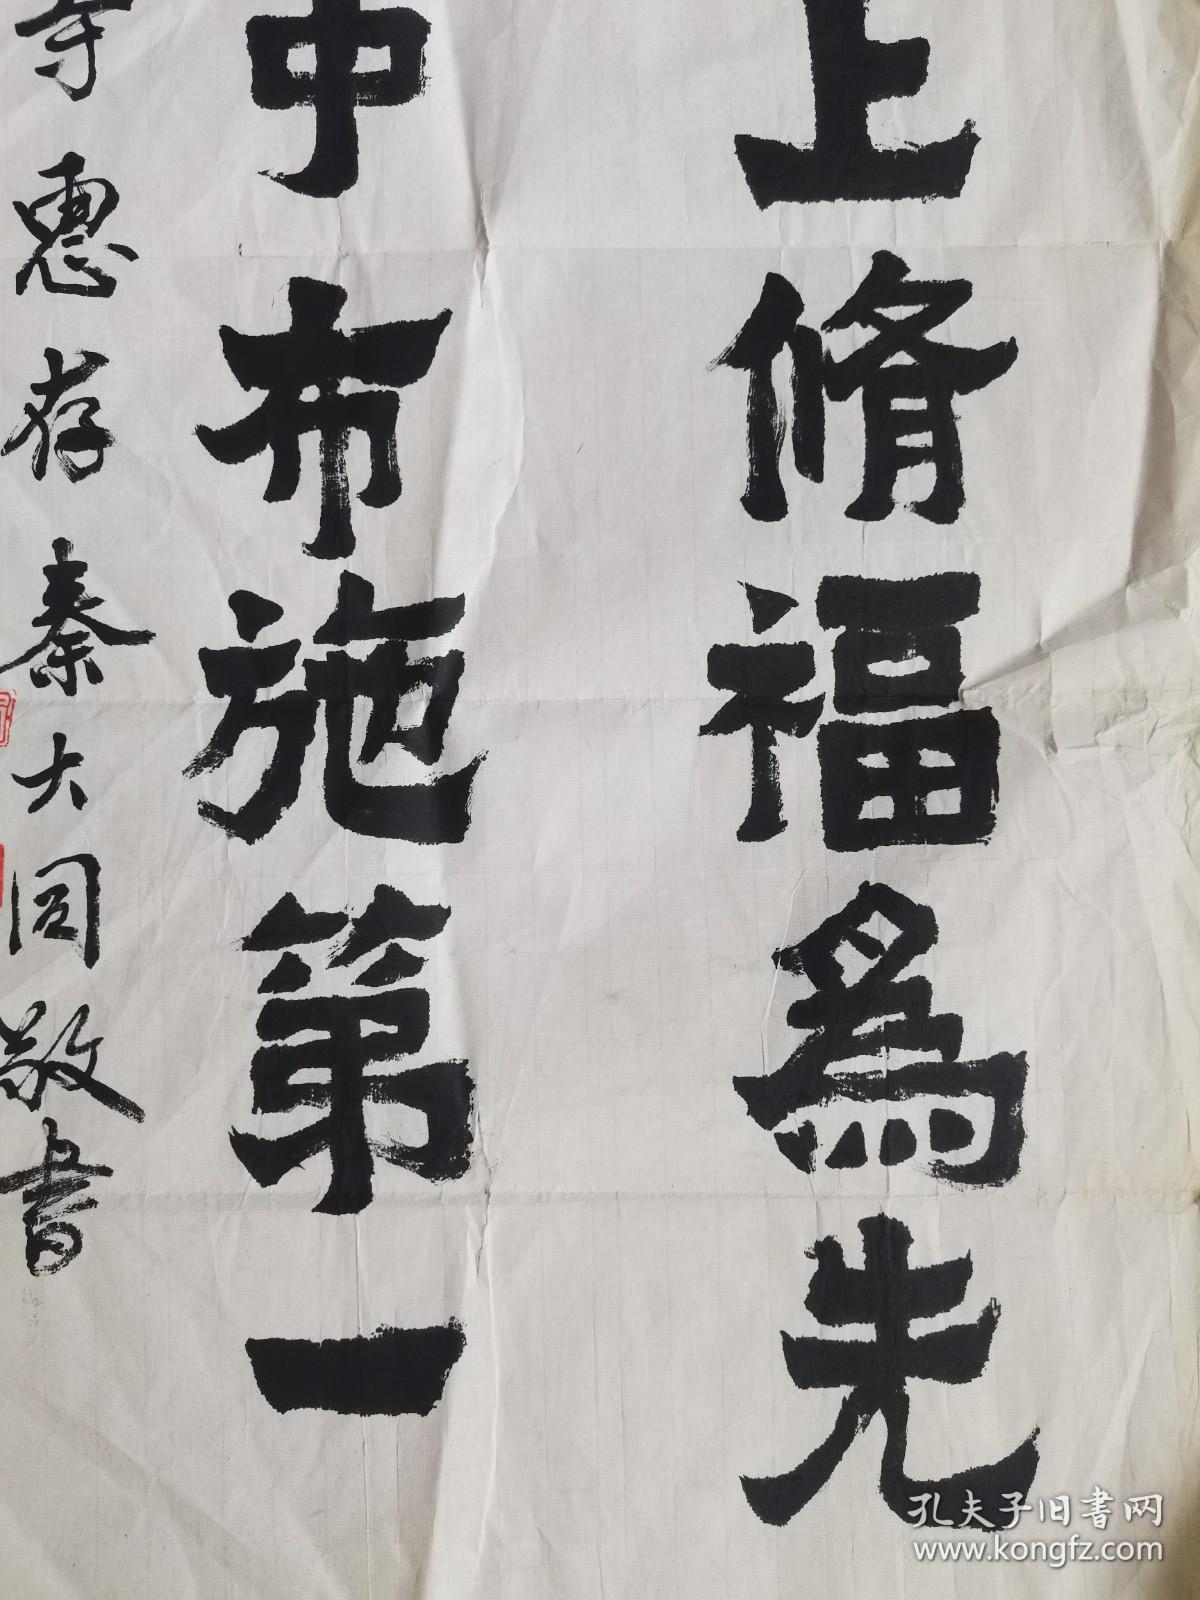 上脩福為先
中布施第一
寺惠存秦大同敬書
孔夫子旧書网
www.kongfz.com